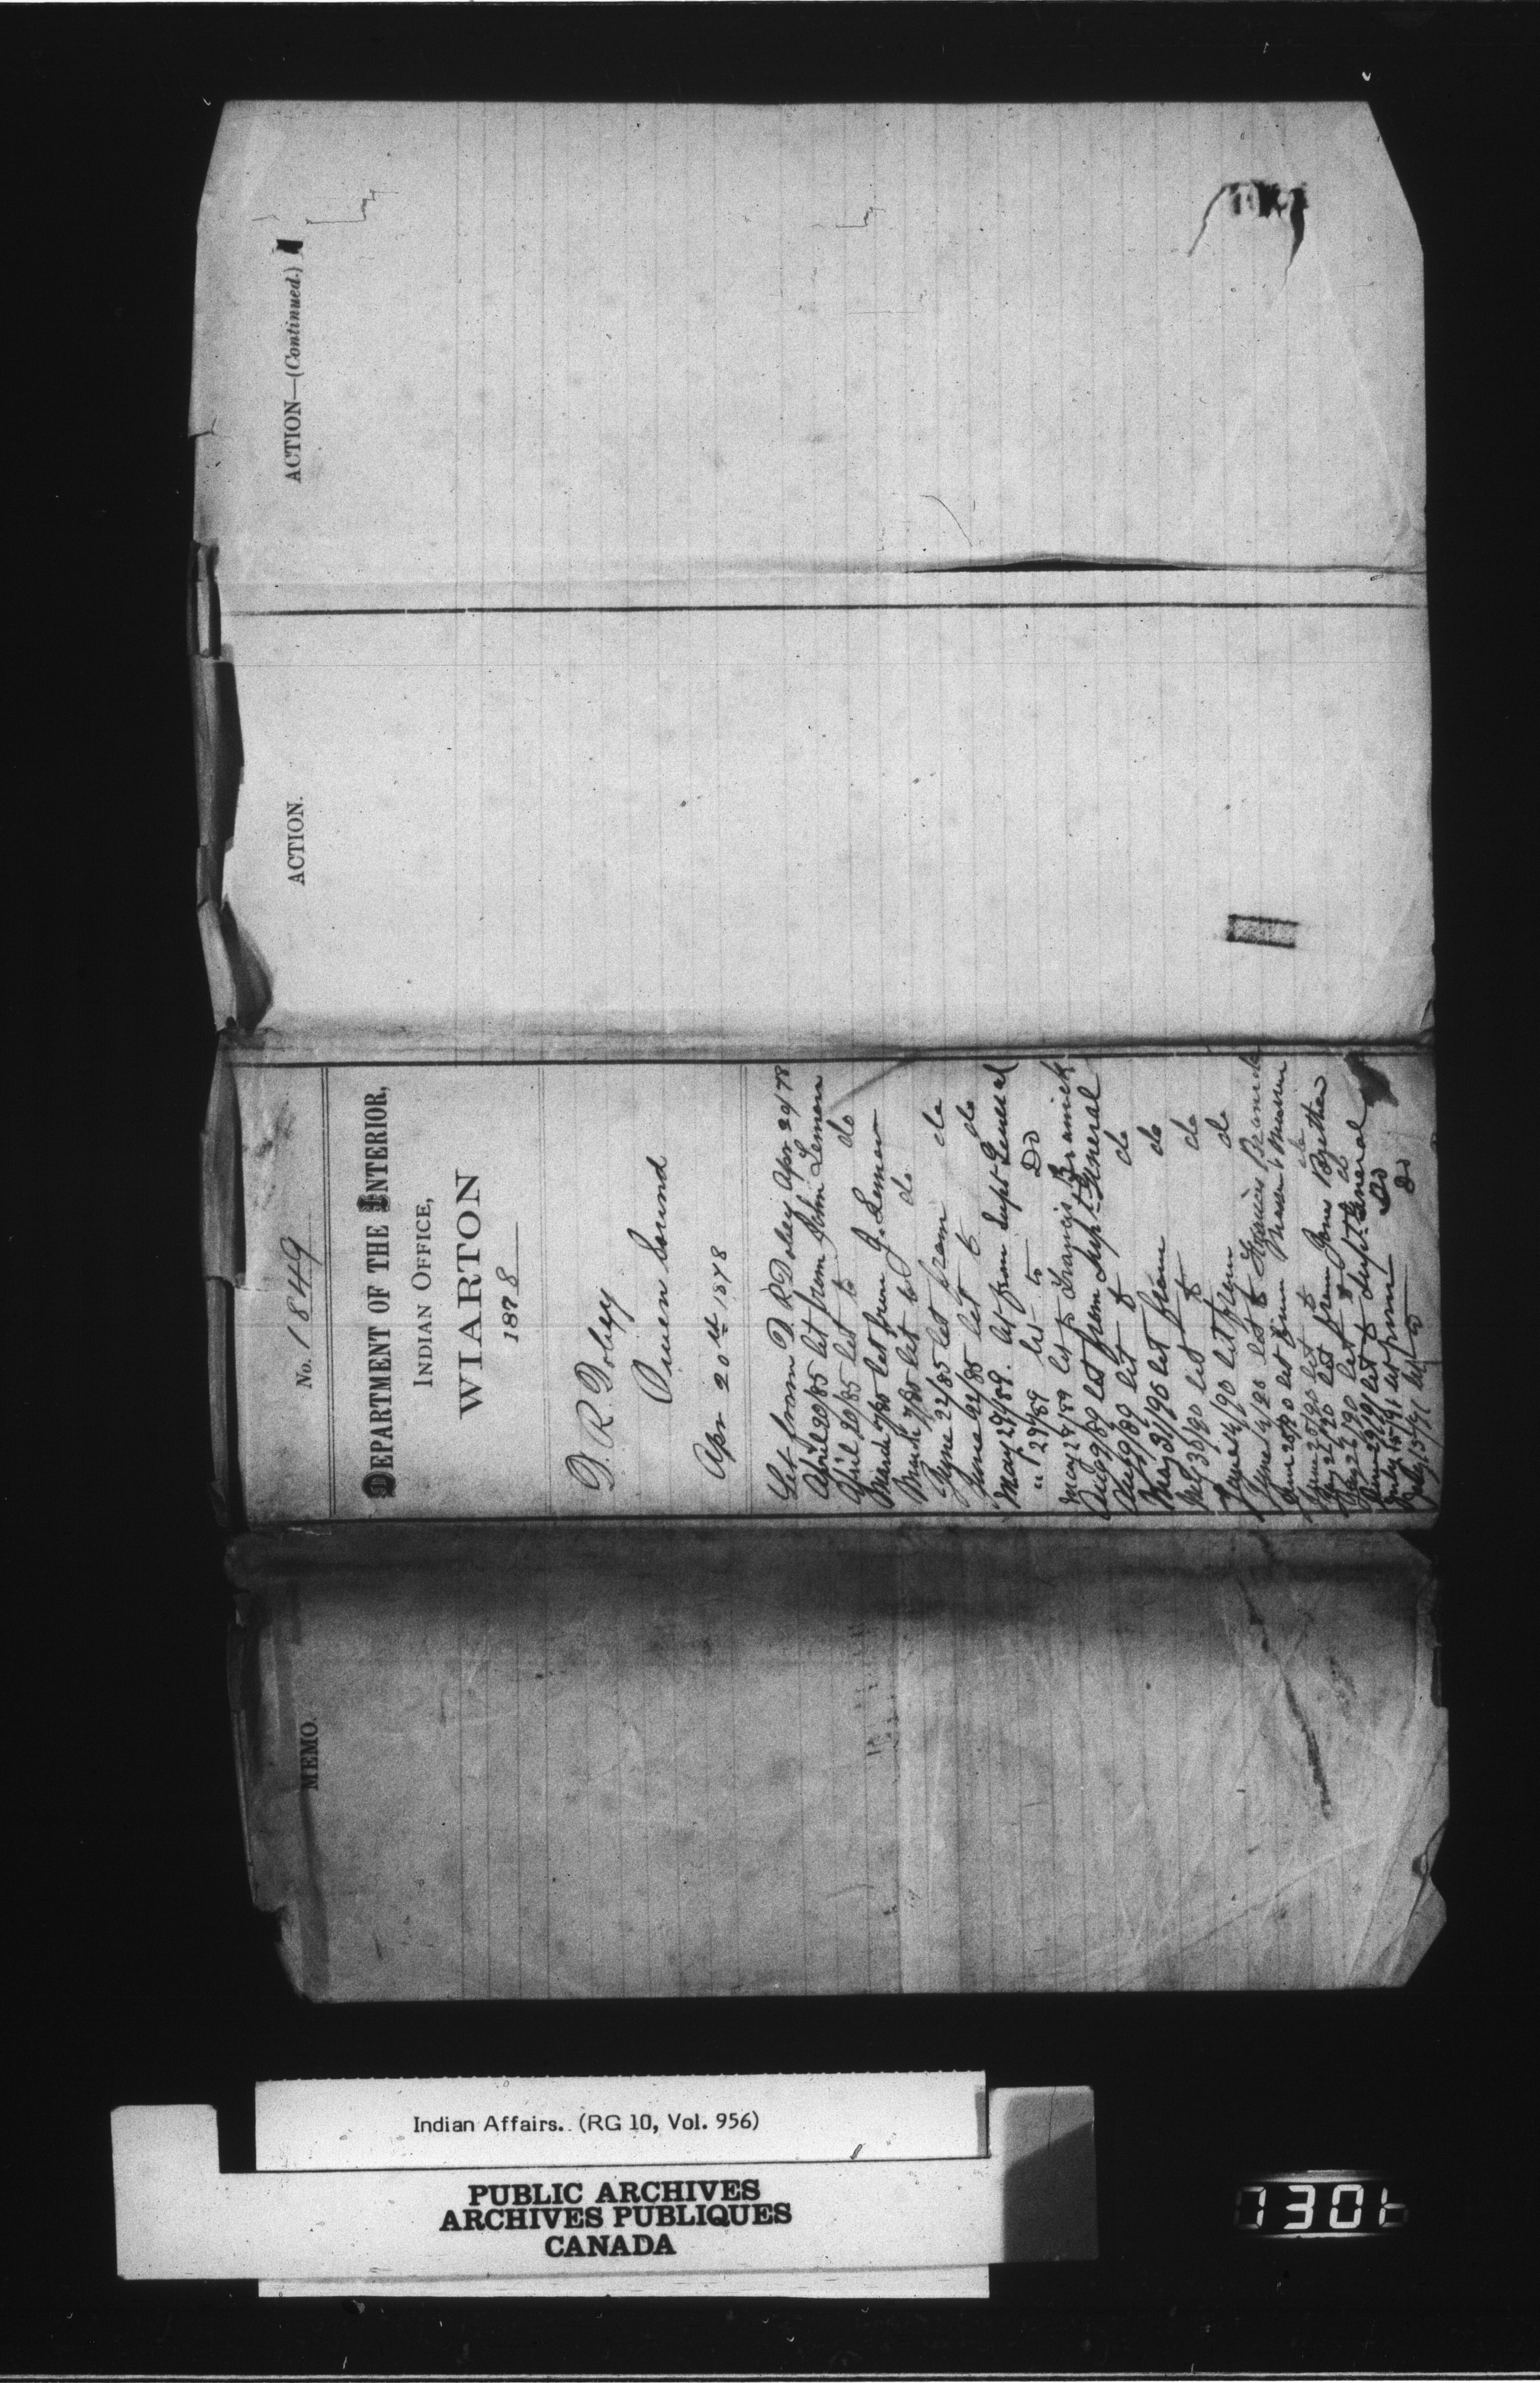 ACTION—(Continued.)
ACTION.
No. 1849
DEPARTMENT OF THE INTERIOR,
INDIAN OFFICE,
WIARTON
1878
D. R. Dobey
Owen Sound
Apr 20th 1878
Let from D. R. Dobey Apr 20/78
April 20/85 let from John Lemon
April 20/85 let to do
March 7/85 let from J. Lemon
March 7/85 let to do
June 22/85 let from do
June 22/85 let to do
May 29/89. let from Supt General
" 29/89 let to Do
May 29/89 let to Francis Bramick
Aug 9/89 let from Supt General
Aug 9/89 let to do
May 31/90 let from do
May 30/90 let to do
June 14/90 let from do
June 14/90 let to Francis
June 20/90 let from
June 20/90 let to do
May 22/90 let from James
May 22/90 let to do
let to Supt General
July 15/91 let from Do
July 15/91 let to Do
MEMO.
Indian Affairs. (RG 10, Vol. 956)
PUBLIC ARCHIVES
ARCHIVES PUBLIQUES
CANADA